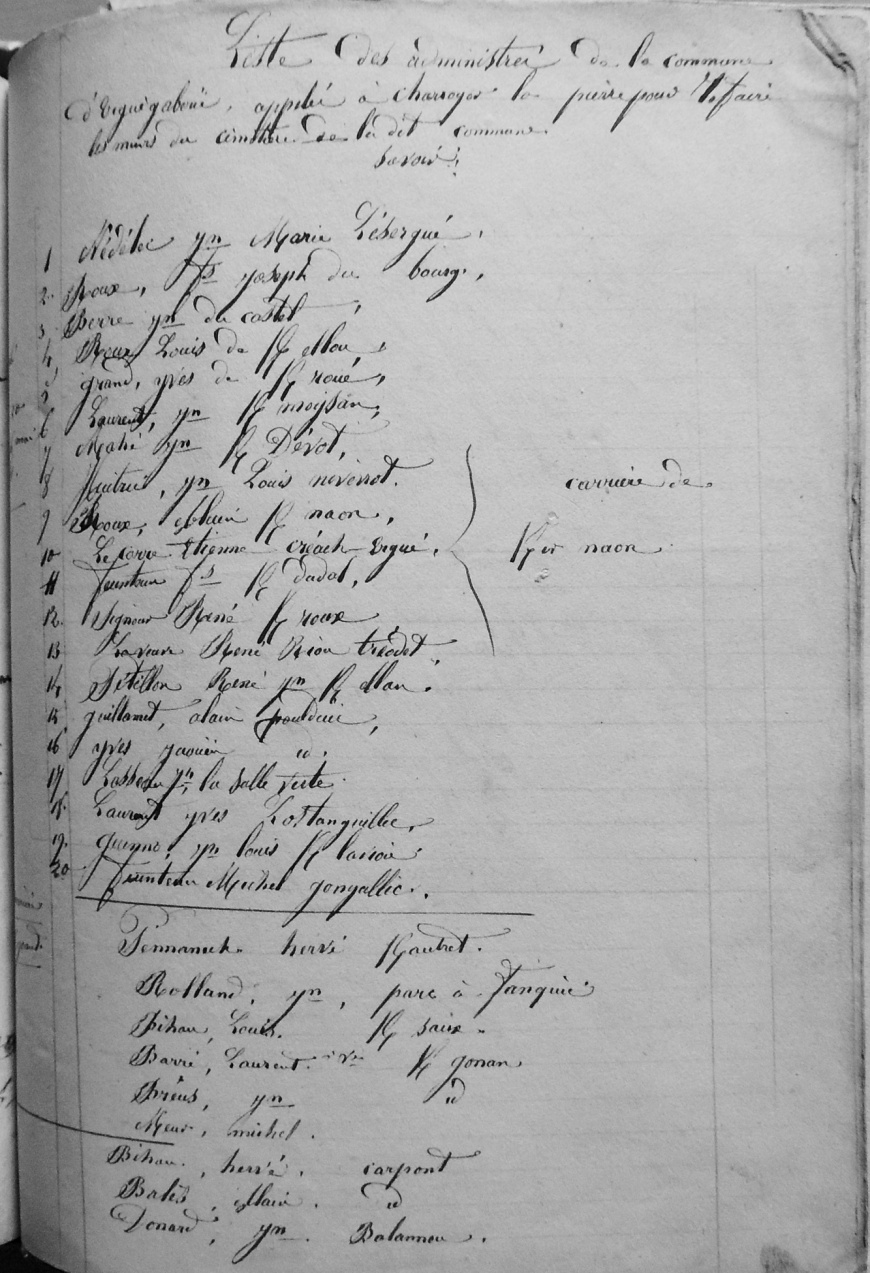 Liste des administrés de la commune
d'Erguégabéric, appelé à charroyer la pierre pour refaire
les murs du cimetière de la dit commune
Savoir:
1 Nédélec yn Marie Lésergué,
2. Roux, fs joseph du bourg,
3 Berre yn du castel,
4 Roux Louis de K ellou,
5 grand, yves de K roué,
6 Laurent, yn K moysan,
7 Mahé yn K Dévot,
8 yn Louis nivirrot.
9 Roux, allain K naon,
10 Le corre Etienne créach Ergué,
11 fs K dadal,
12. Signour René K roux
13 René Rion tréodet,
14 Pétillon René yn K ellan.
15 guillamet, alain poulduic,
16 yves gaouin id.
17 yn, la salle verte.
18. Laurent yves Lostanguillec,
19. guenno, yn louis K
20 Michel gongallic.
carrière de
K er naon
Pennanech hervé K autret.
Rolland, yn, parc a Tanguié
Bihan, Louis. K saux.
Barré, Laurent. ve K gonan
yn id
Meur, michel.
Bihan, hervé. carpont
Batis, allain. id
Donard, yn. Balannou.